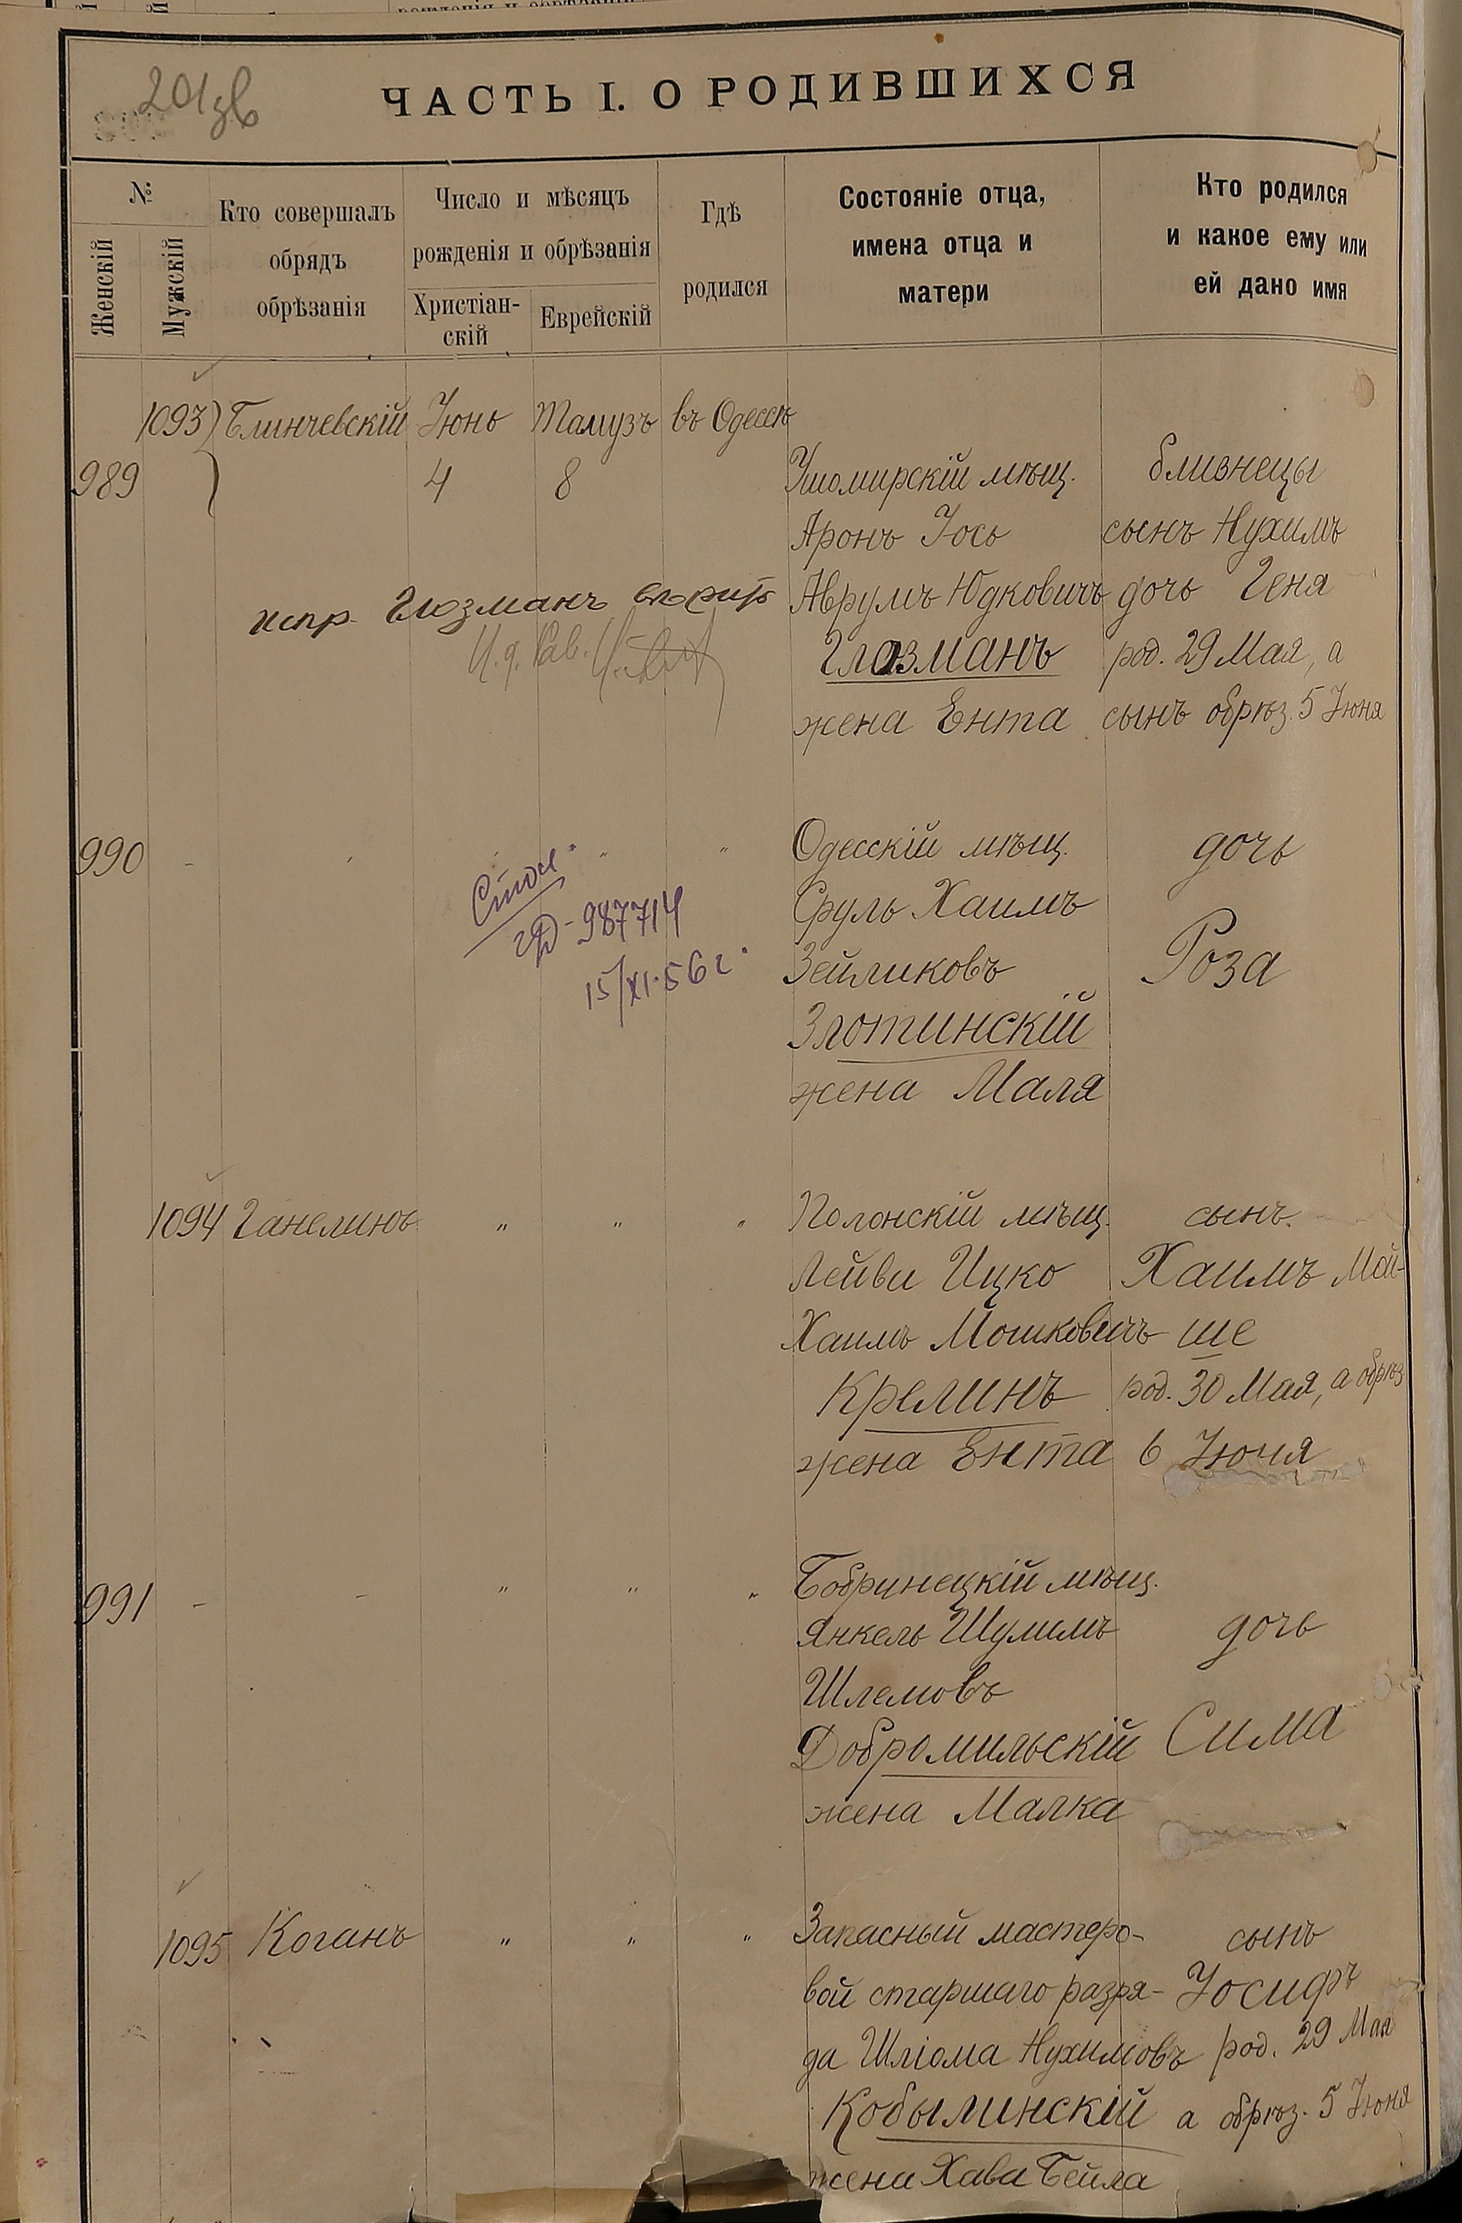 201зв
ЧАСТЬ I. О РОДИВШИХСЯ
№
Женскій
Мужскій
Кто совершалъ
обрядъ
обрѣзанія
Число и мѣсяцъ
рожденія и обрѣзанія
Христіан-
скій
Еврейскій
Гдѣ
родился
Состояніе отца,
имена отца и
матери
Кто родился
и какое ему или
ей дано имя
1093) Блинчевскій Іюнь Тамузъ въ Одессѣ
989 ) 4 8 Ушомирскій мѣщ. близнецы
Аронъ Іось сынъ Нухимъ
Аврумъ Юдковичъ дочь Геня
испр. Глозманъ вѣрить
И. д. Рав.
Глозманъ род. 29 Мая, а
жена Ента сынъ обрѣз. 5 Іюня
990 - " " " Одесскій мѣщ. дочь
Сруль Хаимъ
Зейликовъ Роза
Злотинскій
жена Маля
987714
15/XI-56 г.
1094 Ганелинъ " " " Полонскій мѣщ. сынъ.
Лейви Ицко Хаимъ Мой-
Хаимъ Мошковичъ ше
Крелинъ род. 30 Мая, а обрѣз
жена Ента 6 Іюня
991 - - " " " Бобринецкій мѣщ.
Янкель Шулимъ дочь
Шлемовъ
Добромильскій Сима
жена Малка
1095 Коганъ " " " Запасный мастеро- сынъ
вой старшаго разря- Іосифъ
да Шліома Нухимовъ род. 29 Мая
Кобылинскій а обрѣз. 5 Іюня
жена Хава Бейла